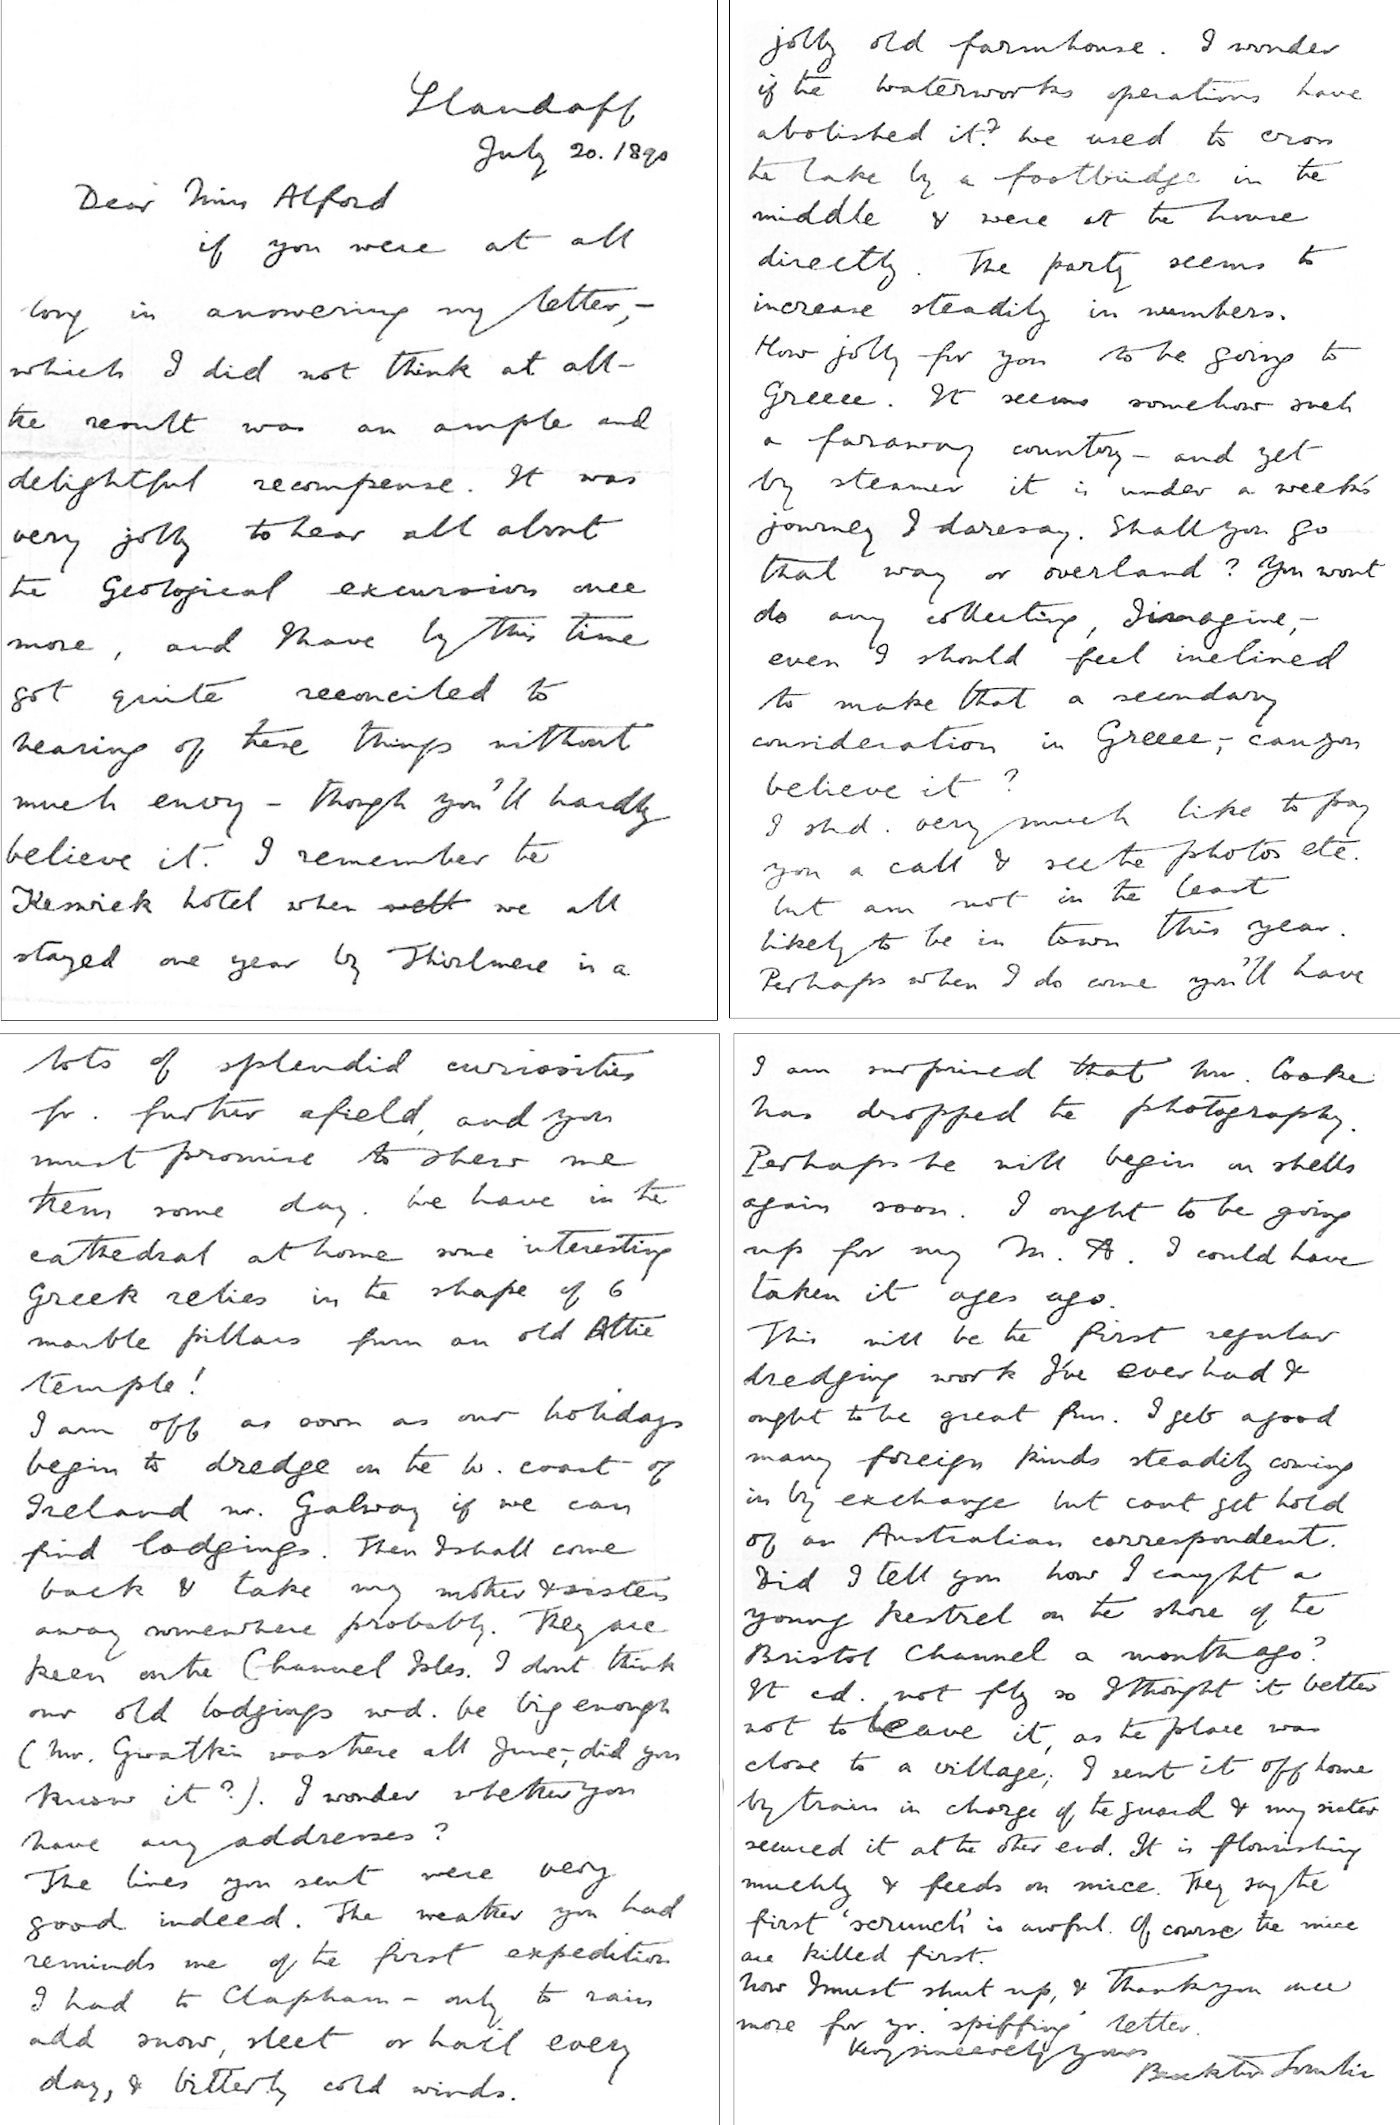 Llandaff
July 20. 1890
Dear Miss Alford
if you were at all
long in answering my letter,–
which I did not think at all–
the result was an ample and
delightful recompense. It was
very jolly to hear all about
the Geological excursion once
more, and I have by this time
got quite reconciled to
hearing of these things without
much envy – though you'll hardly
believe it. I remember the
Keswick hotel when we all
stayed one year by Thirlmere in a
jolly old farmhouse. I wonder
if the waterworks operations have
abolished it? We used to cross
the lake by a footbridge in the
middle & were at the house
directly. The party seems to
increase steadily in numbers.
How jolly for you to be going to
Greece. It seems somehow such
a faraway country – and yet
by steamer it is under a week's
journey I daresay. Shall you go
that way or overland? You wont
do any collecting, I imagine,–
even I should feel inclined
to make that a secondary
consideration in Greece,– can you
believe it?
I shd. very much like to pay
you a call & see the photos etc.
but am not in the least
likely to be in town this year.
Perhaps when I do come you'll have
lots of splendid curiosities
fr. further afield, and you
must promise to shew me
them some day. We have in the
cathedral at home some interesting
Greek relics in the shape of 6
marble pillars from an old Attic
temple!
I am off as soon as our holidays
begin to dredge on the W. coast of
Ireland nr. Galway if we can
find lodgings. Then I shall come
back & take my mother & sisters
away somewhere probably. They are
keen on the Channel Isles. I dont think
our old lodgings wd. be big enough
(Mr. Gwatkin was there all June,– did you
know it?). I wonder whether you
have any addresses?
The lines you sent were very
good indeed. The weather you had
reminds me of the first expedition
I had to Clapham – only to rain
add snow, sleet or hail every
day, & bitterly cold winds.
I am surprised that Mr. Cooke
has dropped the photography.
Perhaps he will begin on shells
again soon. I ought to be going
up for my M. A. I could have
taken it ages ago.
This will be the first regular
dredging work I've ever had &
ought to be great fun. I get a good
many foreign kinds steadily coming
in by exchange but cant get hold
of an Australian correspondent.
Did I tell you how I caught a
young kestrel on the shore of the
Bristol Channel a month ago?
It cd. not fly so I thought it better
not to leave it, as the place was
close to a village; I sent it off home
by train in charge of the guard & my sister
secured it at the other end. It is flourishing
muchly & feeds on mice. They say the
first 'scrunch' is awful. Of course the mice
are killed first.
Now I must shut up, & thank you once
more for yr. 'spiffing' letter.
Very sincerely yours
Brockton Tomlin